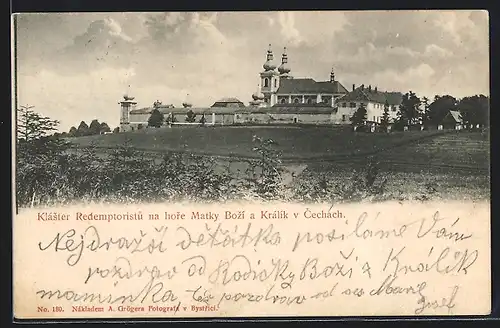 Klášter Redemptoristů na hoře Matky Boží a Králík v Čechách.
Nejdražší děťátka posíláme Vám
pozdrav od Rodičky Boží z Králík
maminka, též pozdrav od
Josef
No. 180. Nákladem A. Grögera Fotografa v Bystřici.